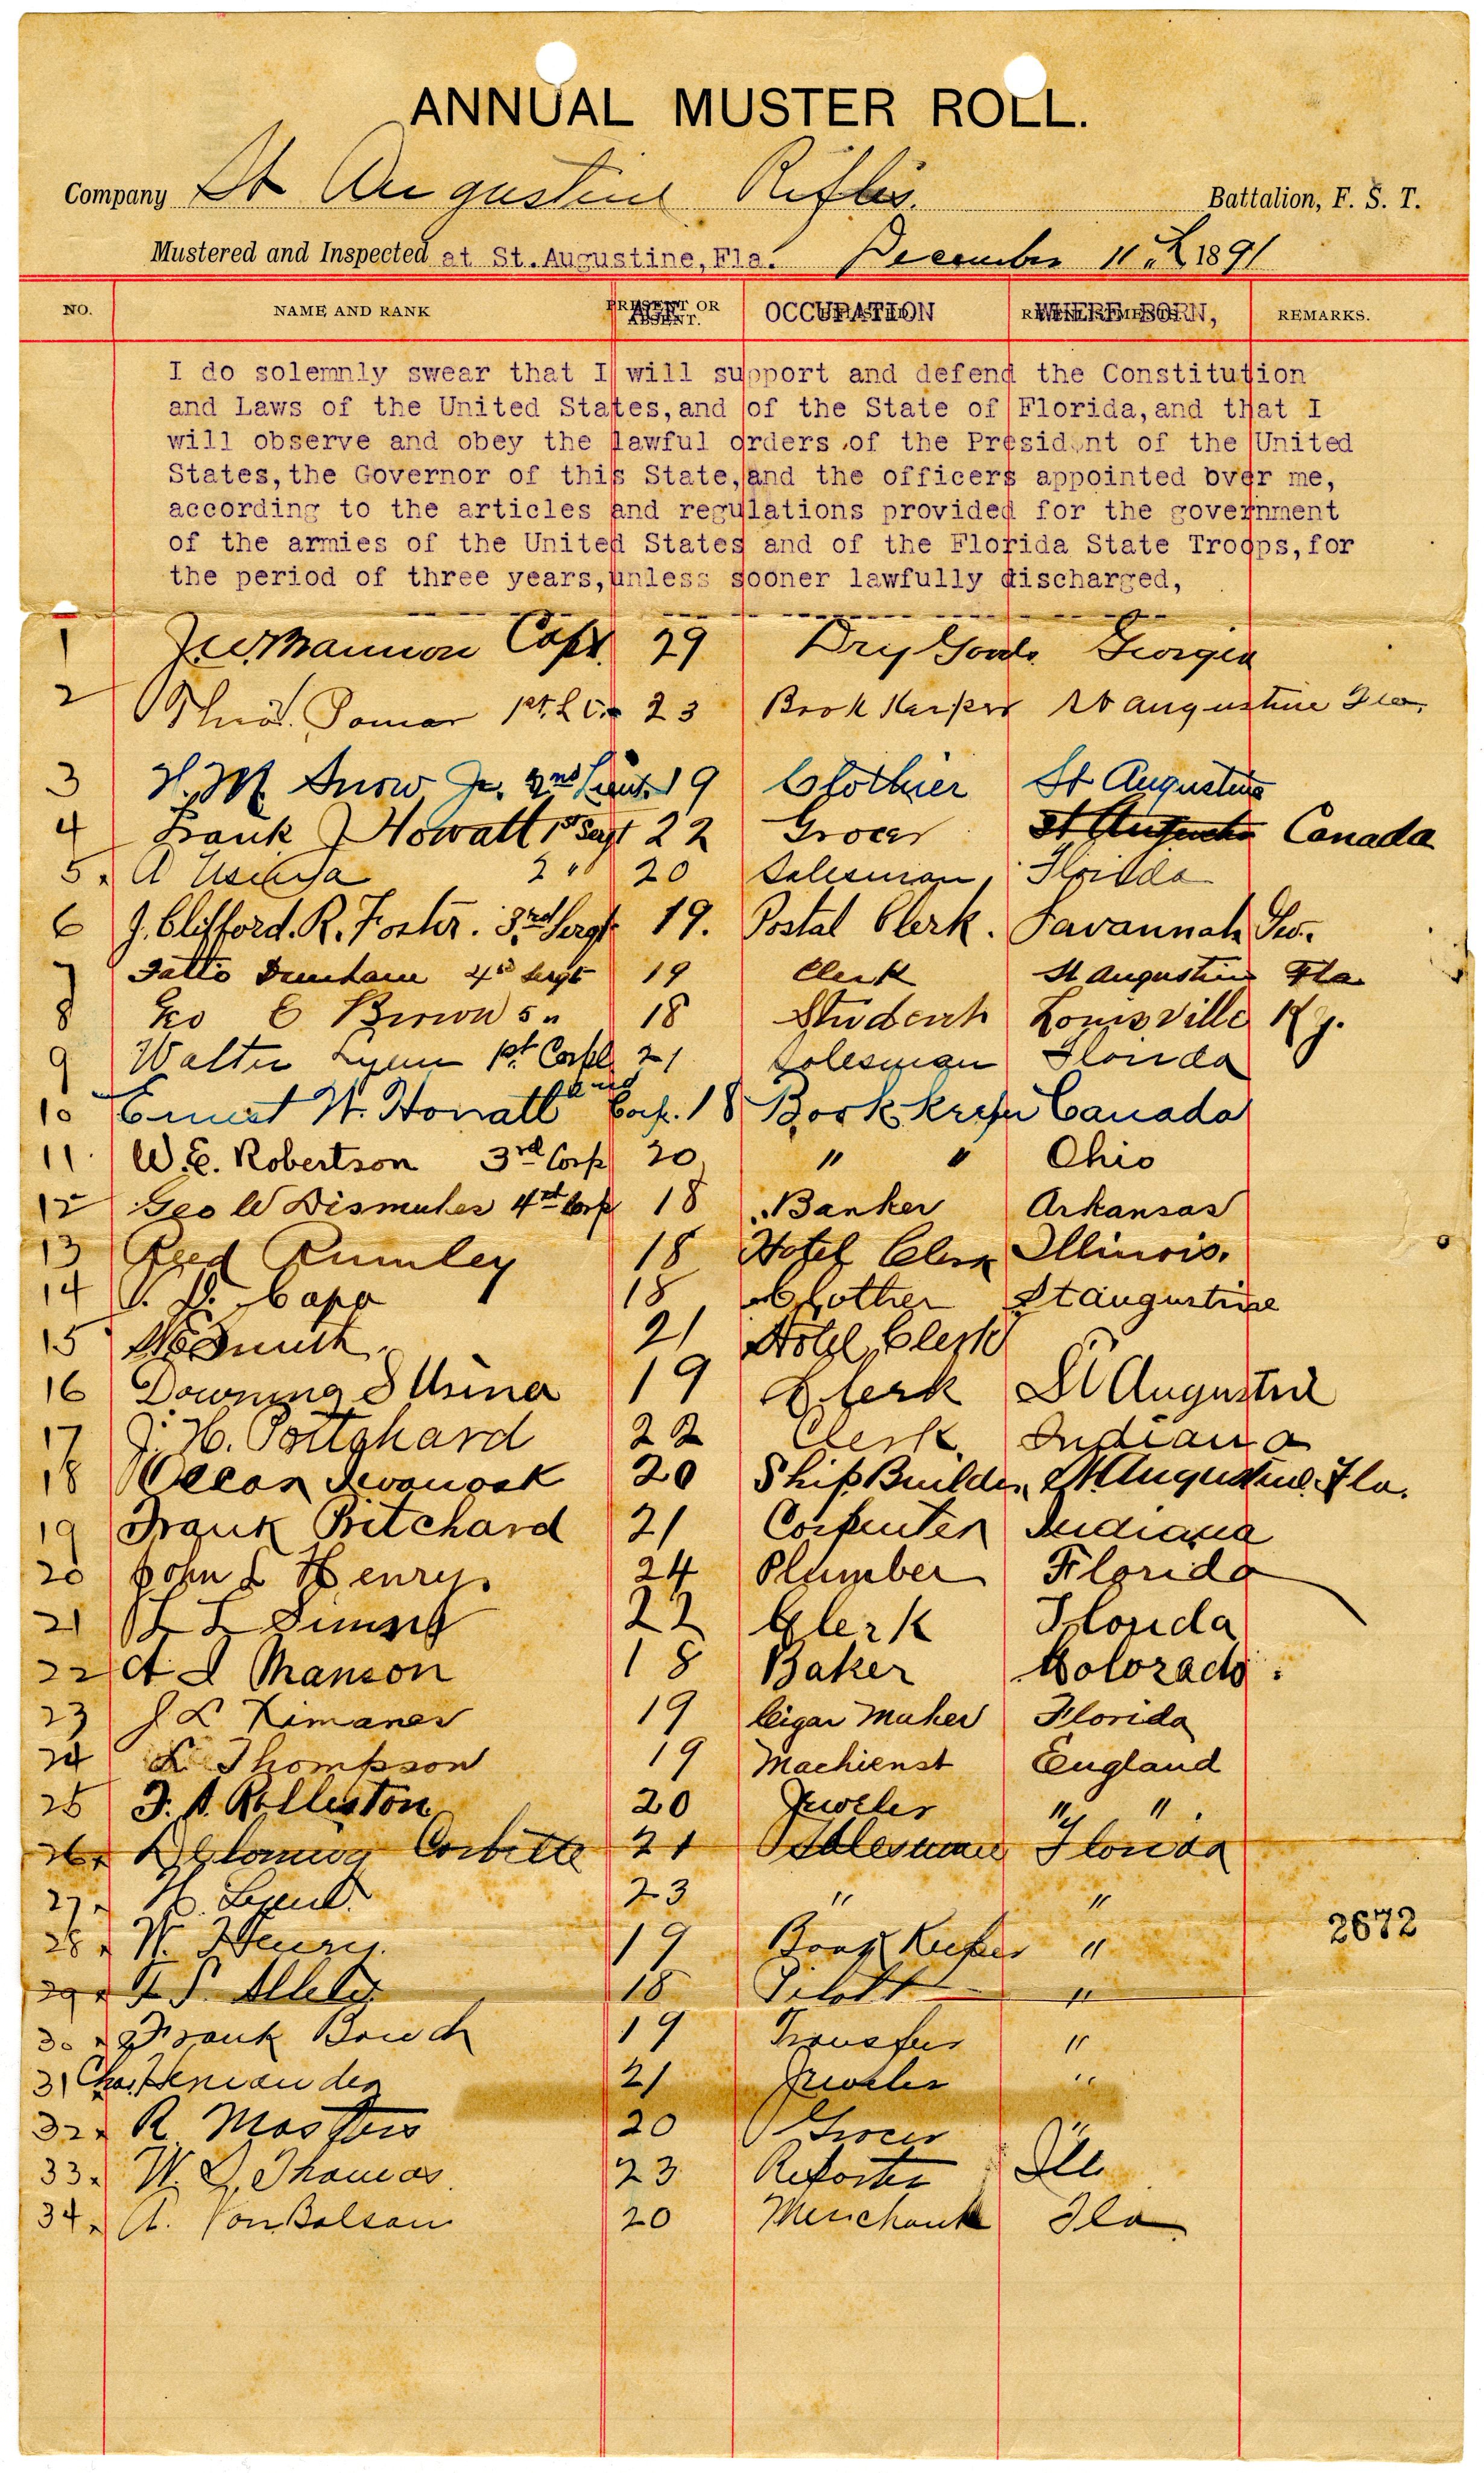 ANNUAL MUSTER ROLL.
Company St Augustine Rifles. Battalion, F. S. T.
Mustered and Inspected at St.Augustine, Fla. December 11th 1891
NO. NAME AND RANK AGE OCCUPATION WHERE BORN, REMARKS.
I do solemnly swear that I will support and defend the Constitution
and Laws of the United States, and of the State of Florida, and that I
will observe and obey the lawful orders of the President of the United
States, the Governor of this State, and the officers appointed over me,
according to the articles and regulations provided for the government
of the armies of the United States and of the Florida State Troops, for
the period of three years, unless sooner lawfully discharged,
1 Capt. 29 Dry Goods Georgia
2 Pomar 1st. Lt. 23 Book Keeper St Augustine Fla.
3 H. M Snow Jr. 2nd Lieut. 19 Clothier St Augustine
4 Frank J Howatt 1st Sagt 22 Grocer St Augustine Canada
5. A Usina 2 " 20 Salesman, Florida
6 J. Clifford. R. Foster. 3rd Sergt. 19. Postal Clerk. Savannah Geo.
7 Fatio Dunham 4th Sergt 19 Clerk St Augustine Fla.
8 Geo E Brown 5 " 18 Student Louisville Ky.
9 Walter Lyon 1st. Corpl 21 Salesman Florida
10 Ernest W. Howatt 2nd Corp. 18 Book keeper Canada
11. W. E. Robertson 3rd Corp 20 " " Ohio
12 Geo W Dismukes 4th Corp 18 Banker Arkansas
13 Reed Rumley 18 Hotel Clerk Illinois.
14 Capo 18 Clothier St augustine
15 Smith. 21 Hotel Clerk
16 Downing S Usina 19 Clerk St Augustine
17 J. H. 22 Clerk. Indiana
18 20 Ship Builder, St Augustine. Fla.
19 Frank Pritchard 21 Carpenter Indiana
20 John L Henry. 24 Plumber Florida
21 22 Clerk Florida
22 A J Manson 18 Baker Colorado.
23 J L Ximanes 19 Cigar Maker Florida
24 L Thompson 19 Machienst England
25 F. A. Rolleston 20 Jeweler " " .
26. Corbette 21 Salesman Florida
27. 23 " "
28. W. Henry. 19 Book Keeper "
2672
29. 18 Pilott "
30. Frank 19 Transfer "
31 Chas. Hernandez 21 Jeweler "
32. R. Masters 20 Grocer
33. W. Thomas 23 Reporter Ill
34. A. Von Balsan 20 Merchant Fla